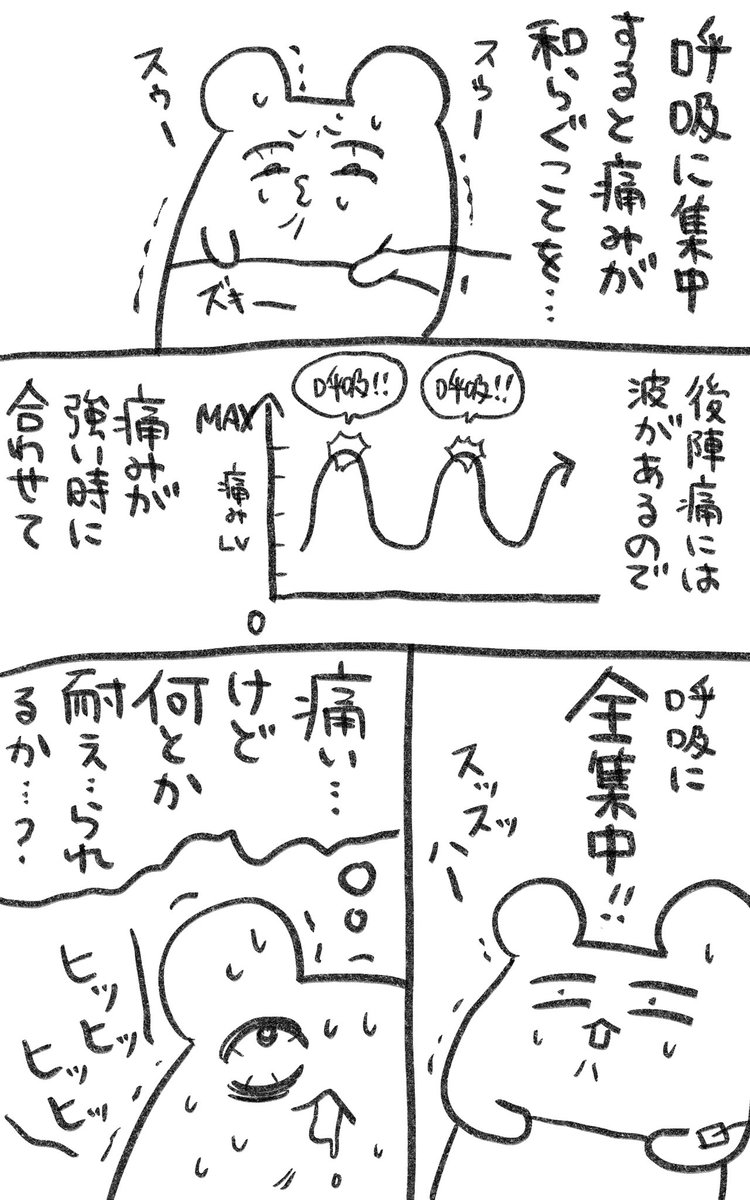 呼吸に集中
すると痛みが
和らぐっことを…
スゥー
スゥー
ズキー
後陣痛には
波があるので
呼吸!!
呼吸!!
MAX
痛み
LV
0
痛みが
強い時に
合わせて
呼吸に
全集中!!
スッ
スッ
ハー
痛い…
けど
何とか
耐え…られ
るか…?
ヒッ
ヒッ
ヒッ
ヒッ